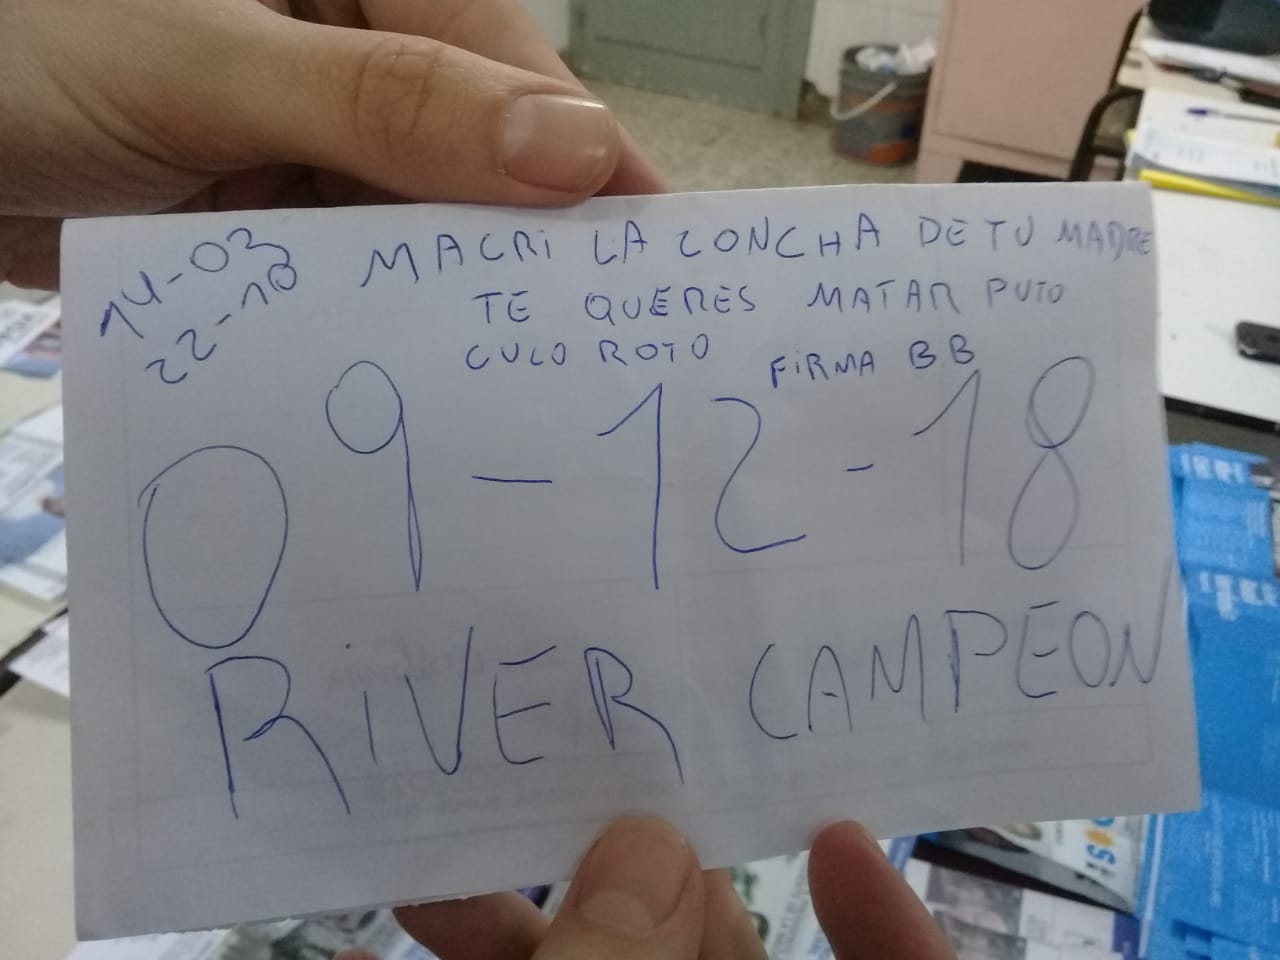 14-03
22-10
MACRI LA CONCHA DE TU MADRE
TE QUERES MATAR PUTO
CULO ROTO FIRMA BB
09-12-18
RIVER CAMPEON